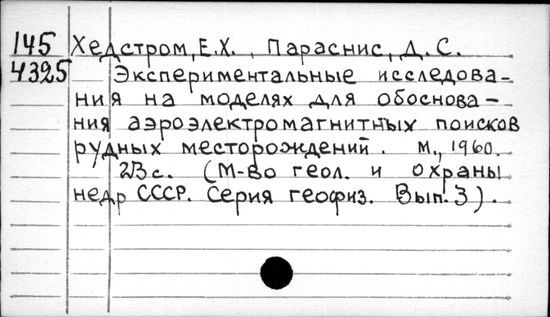 145 Хедстром, Е.Х., Параснис, Д.С.
4325 Экспериментальные исследова-
ния на моделях для обоснова-
ния аэроэлектромагнитных поисков
рудных месторождений. М., 1960.
23 с. (М-во геол. и охраны
недр СССР. Серия геофиз. Вып. 3).